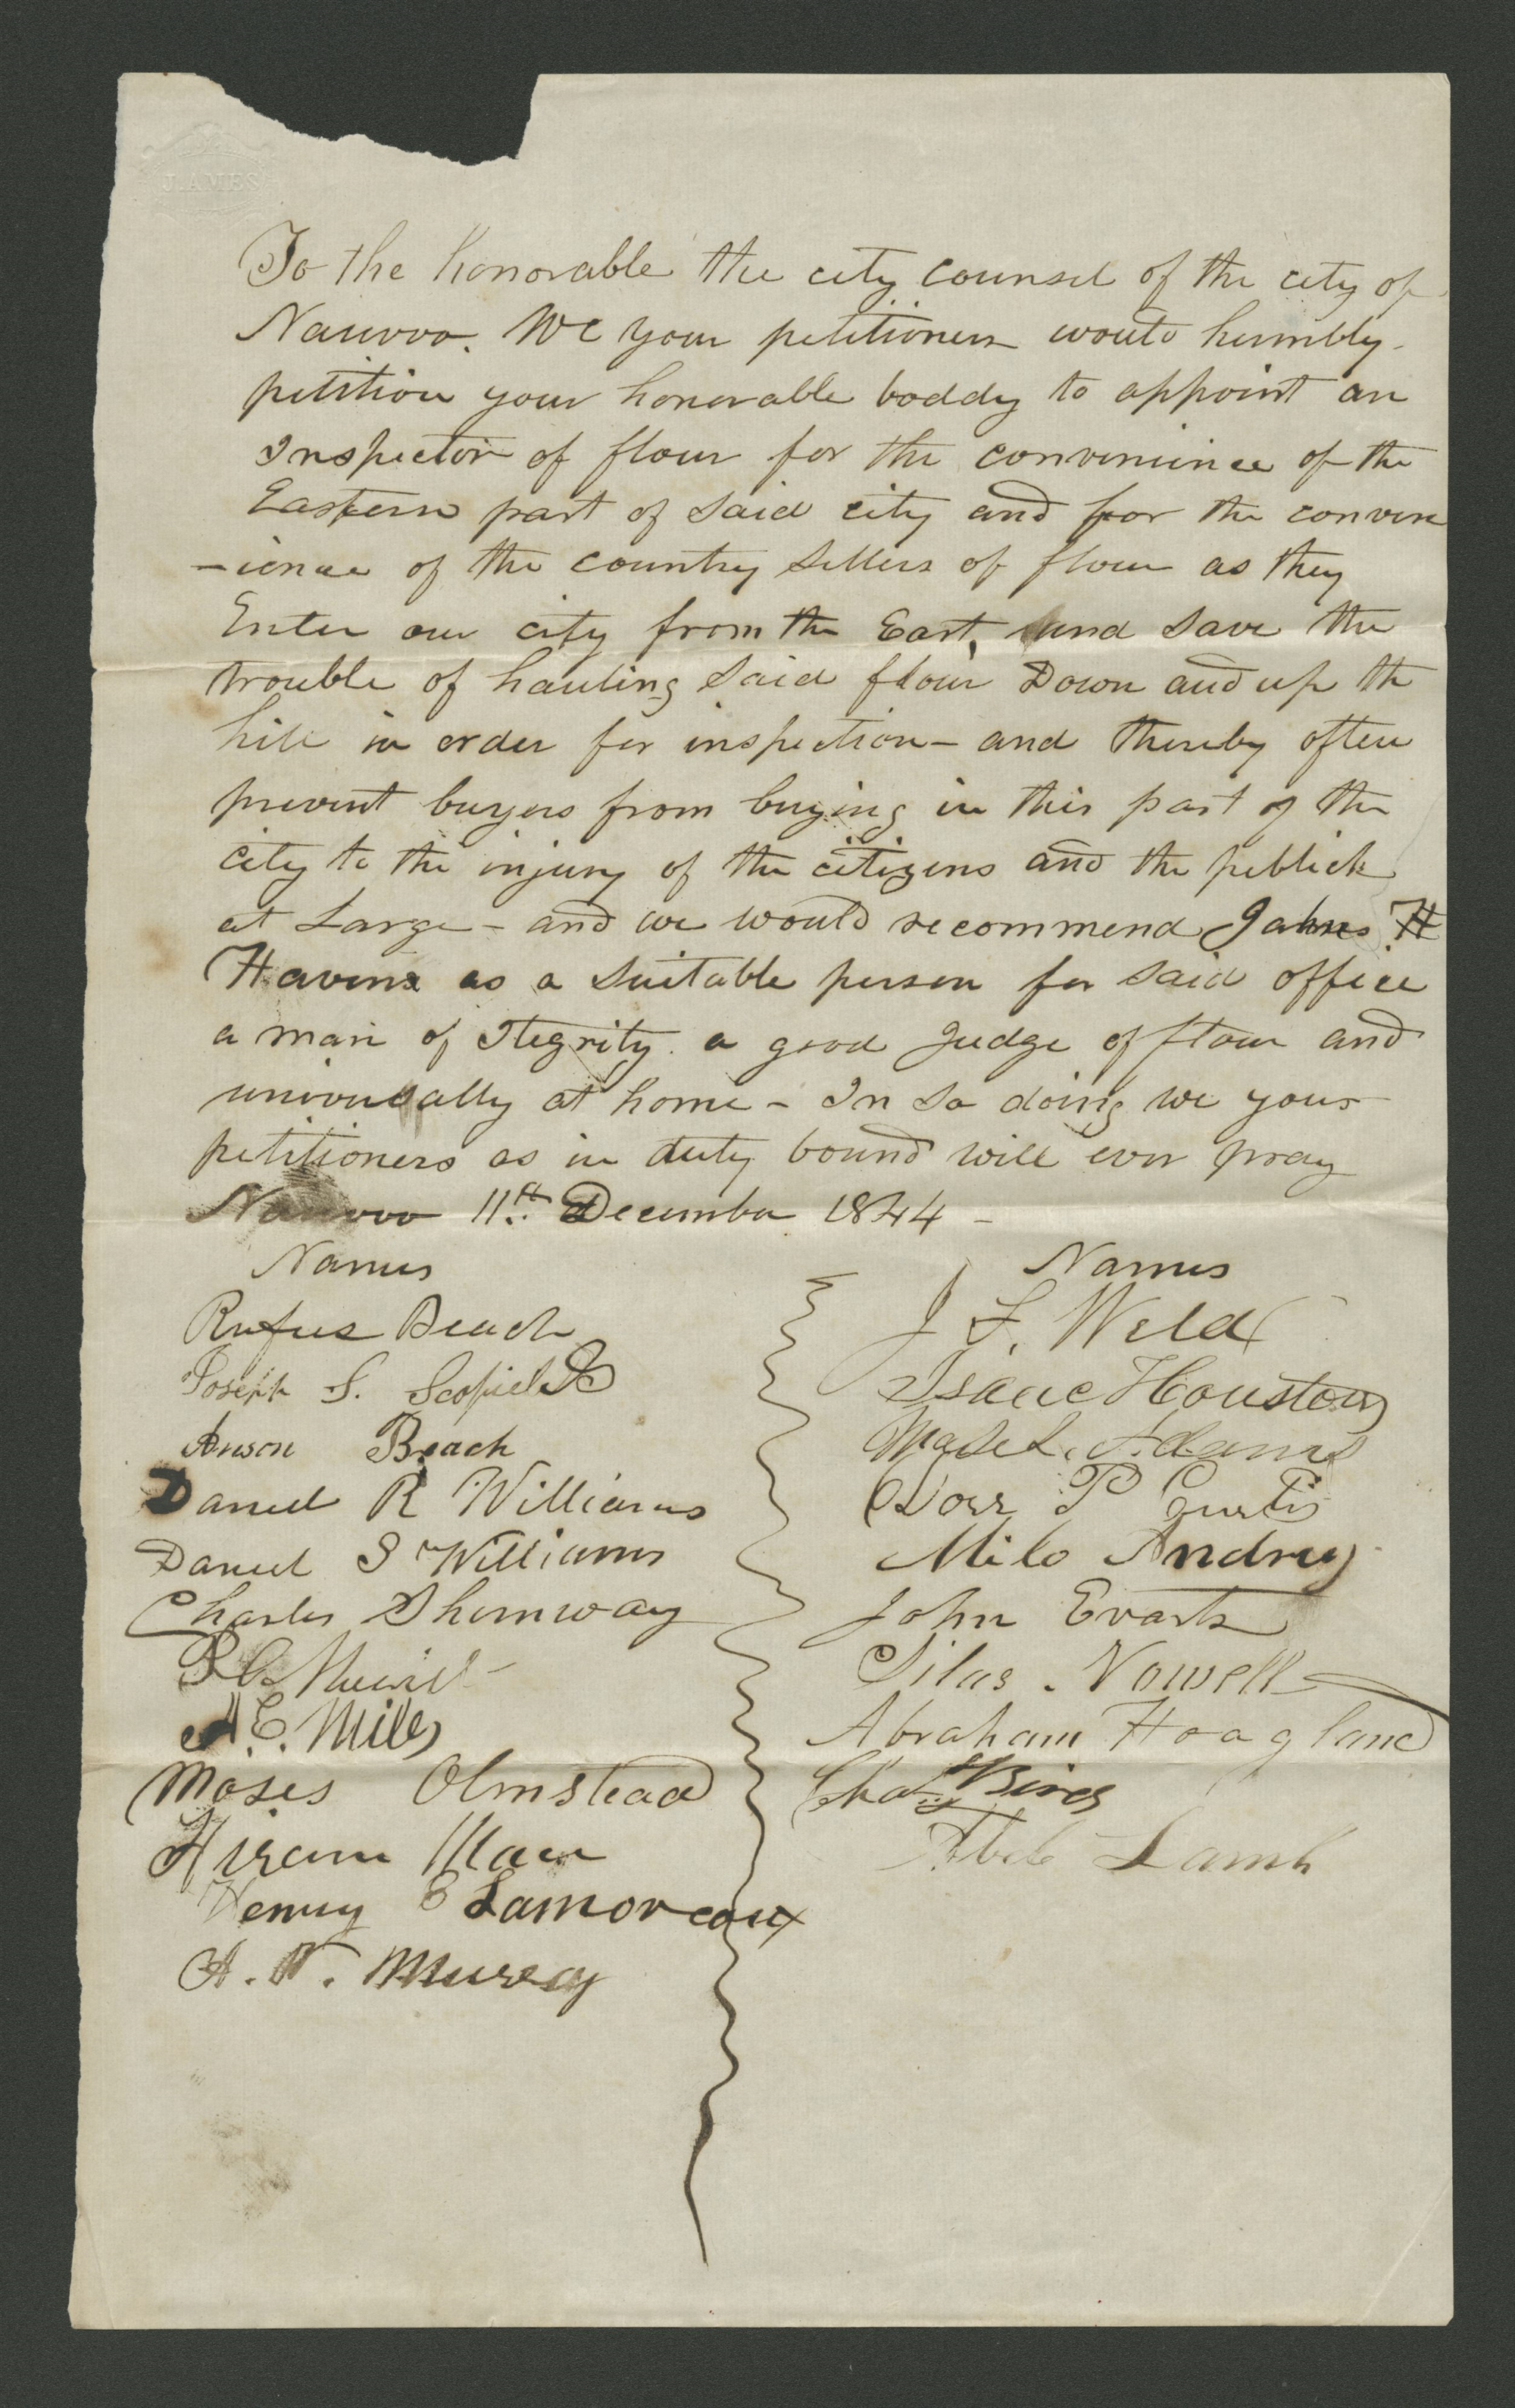 J. AMES
To the honorable the city counsel of the city of
Nauvoo. We your petitioners would humbly
petition your honorable boddy to appoint an
Inspector of flour for the conveninience of the
Eastern part of said city and for the conven
-ience of the country Sellers of flour as they
Enter our city from the East, and save the
trouble of hauling said flour Down and up the
hill in order for inspection – and thereby often
prevent buyers from buying in this part of the
city to the injury of the citizens and the publick
at Large – and we would recommend James H
Havens as a Suitable person for said office
a man of Itegrity a good Judge of flour and
universally at home – In so doing we your
petitioners as in duty bound will ever pray
Nauvoo 11th. December 1844 –
Names
Rufus Beach
Joseph S. Scofield
Anson Beach
Daniel R Williams
Daniel S Williams
Charles Shumway
P C Merril
A. E. Miles
Moses Olmstead
Hiram
Henry E Lamoreaux
A. Murray
Names
J F. Weld
Isaac Houston
Moses Adams
Dorr P Curtis
Milo Andrus
John Evarts
Silas Nowell
Abraham Hoagland
Chas Bird
Abel Lamb